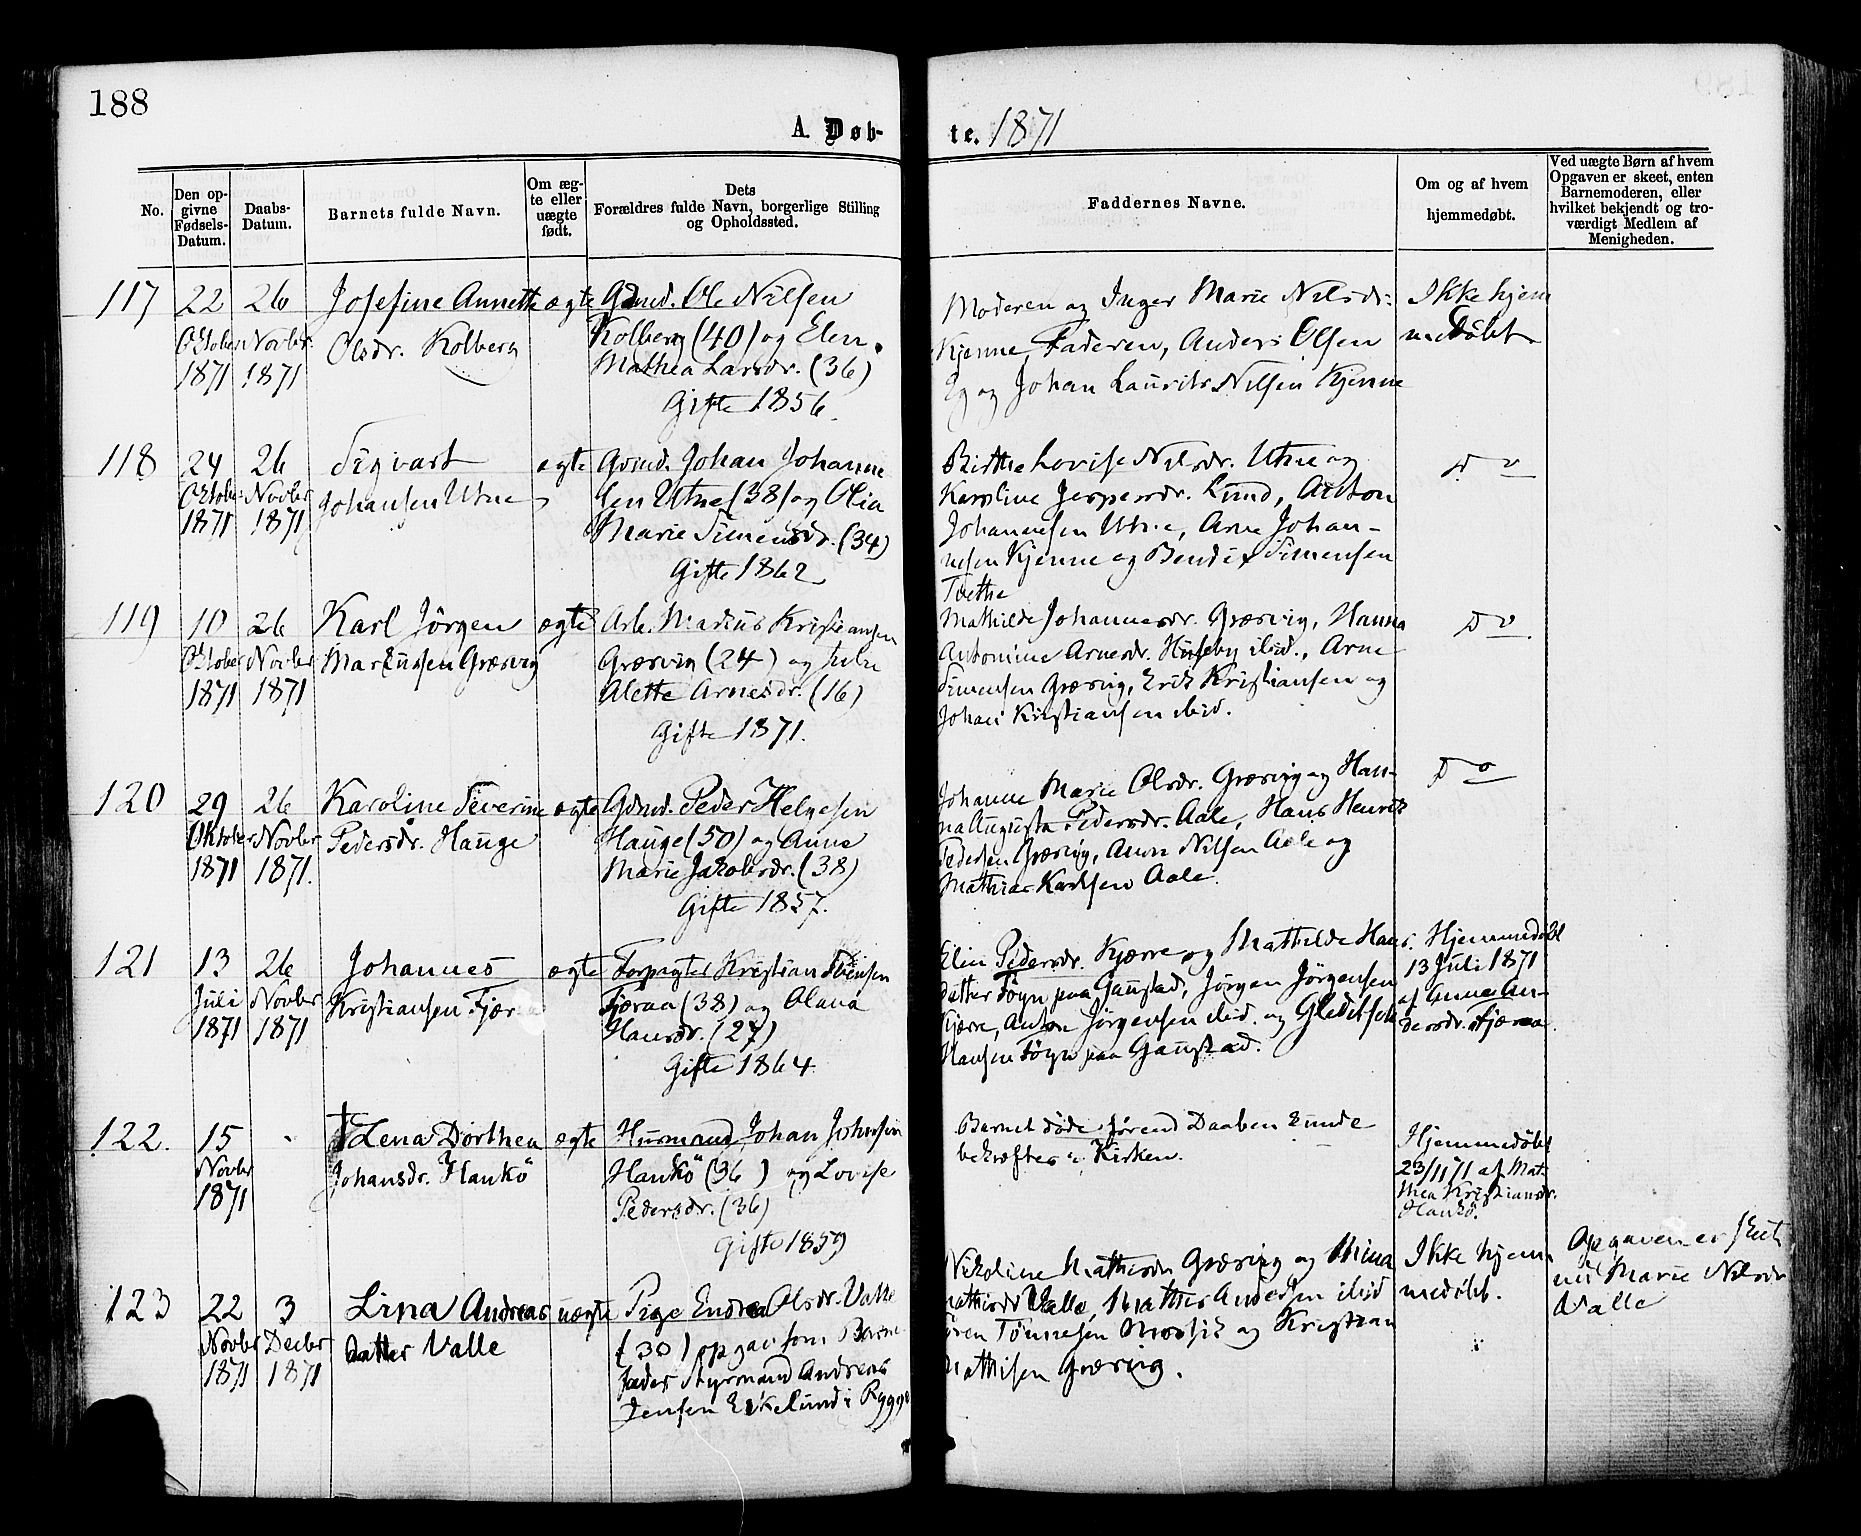 188
A. Døb-
te. 1871
No.
Den op-
givne
Fødsels-
Datum.
Daabs-
Datum.
Barnets fulde Navn.
Om æg-
te eller
uægte
født.
Dets
Forældres fulde Navn, borgerlige Stilling
og Opholdssted.
Faddernes Navne.
Om og af hvem
hjemmedøbt.
Ved uægte Børn af hvem
Opgaven er skeet, enten
Barnemoderen, eller
hvilket bekjendt og tro-
værdigt Medlem af
Menigheden.
117
22
Oktober
1871
26
Novbr.
1871
Josefine Annette
Olsdr. Kolberg
ægte
Gdmd. Ole Nilsen
Kolberg (40) og Elen
Mathea Larsdr. (36)
Gifte 1856.
Moderen og Inger Marie Nilsdr.
Kjenne, Faderen, Anders Olsen
Eg og Johan Laurits Nilsen Kjenne
Ikke hjem
medøbt
118
24
Oktober
1871
26
Novbr
1871
Sigvart
Johansen Utne
ægte
Gdmd. Johan Johanne
sen Utne (38) og Olia
Marie Simensdr. (34)
Gifte 1862
Birthe Lovise Nilsdr. Utne og
Karoline Jespersdr. Lund, Anton
Johannesen Utne, Arne Johan-
nesen Kjenne og Bendix Simensen
Tosthe
Do
119
10
Oktober
1871
26
Novbr
1871
Karl Jörgen
Markussen Græsvig
ægte
Arb. Markus Kristiansen
Græsvig (24) og
Alette Arnesdr. (16)
Gifte 1871.
Mathilde Johannesdr. Græsvig, Hanna
Antonine Arnesdr. Huseby ibid., Arne
Simensen Græsvig, Erik Kristiansen og
Johan Kristiansen ibid.
Do
120
29
Oktober
1871
26
Novbr
1871.
Karoline Severine
Pedersdr. Hauge
ægte
Gdmd. Peder Helgesen
Hauge (50) og Anne
Marie Jakobsdr. (38)
Gifte 1857.
Johanne Marie Olsdr. Græsvig og Han-
na Augusta Pedersdr. Aale, Hans Henrik
Pedersen Græsvig, Anon Nilsen Aale og
Mathias Karlsen Aale.
Do
121
13
Juli
1871
26
Novbr
1871
Johannes
Kristiansen Fjæraa
ægte
Forpagter Kristian Svensen
Fjæraa (38) og Olava
Hansdr. (27)
Gifte 1864.
Elin Pedersdr. Kjærre og Mathilde Hans
datter Søgn paa Gaustad, Jörgen Jörgensen
Kjærre, Anton Jörgensen ibid. og Gleditsen
Hansen Søgn paa Gaustad.
Hjemmedöbt
13 Juli 1871
af Anne An-
dersdr. Fjæraa.
122.
15
Novbr
1871
† Lena Dorthea
Johansdr. Hankö
ægte
Husmand Johan Johnsen
Hankö (36) og Lovise
Pedersdr. (36)
Gifte 1859
Barnet døde førend Daaben kunde
bekræftes i Kirken.
Hjemmedöbt
23/11 71 af Mat-
thea Kristiansdr.
Hankö.
123
22
Novbr
1871
3
Decbr
1871
Lina Andreas
datter Valle
uægte
Pige Endrea Olsdr. Valle
(30) opgav som Barne
fader Styrmand Andreas
Jensen Eikelund i Rygge
Nikoline Mathisdr Græsvig og Mina
Mathisdr Valle, Mathis Andersen ibid
Sören Tönnesen Mosvik og Kristian
Mathisen Græsvig.
Ikke hjem
medøbt.
Opgaven er skeet
ved Marie Nilsdr
Valle